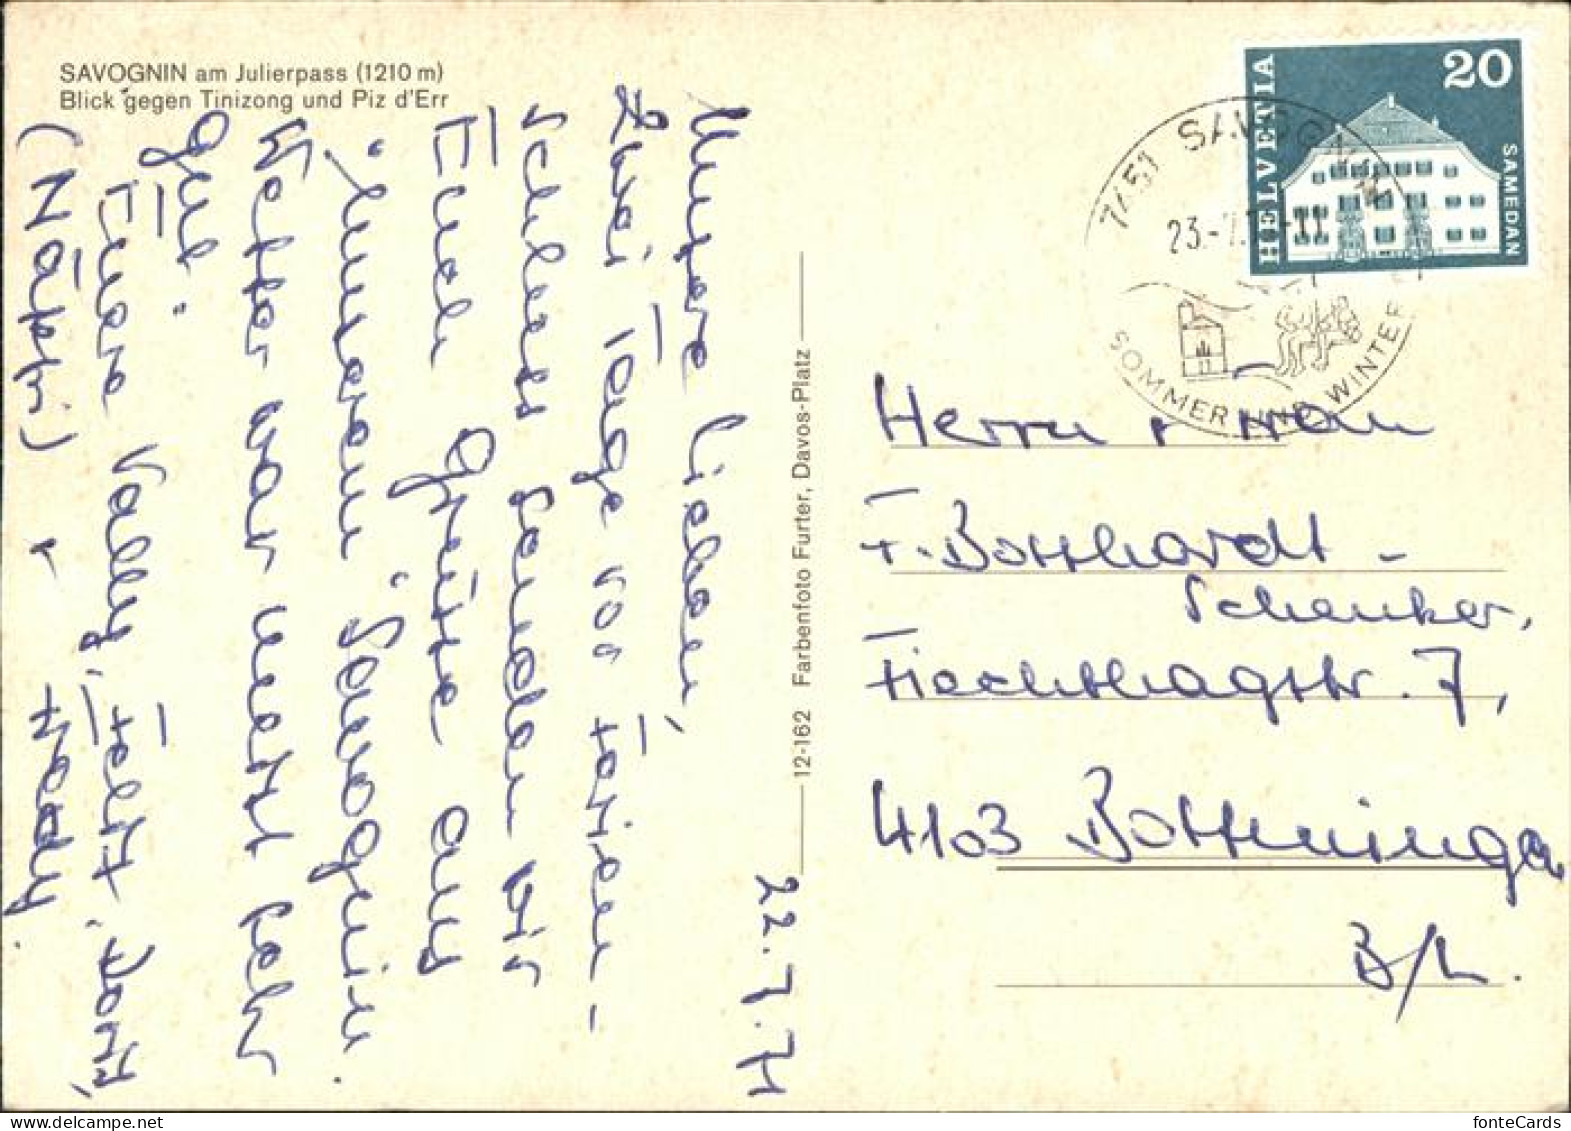 SAVOGNIN am Julierpass (1210 m)
Blick gegen Tinizong und Piz d'Err
22.7.71
Unsere lieben,
Zwei Tage vor Ferien-
schluss senden wir
Euch Grüsse aus
"unserem" Savognin.
Wetter war recht sehr
gut.
Eure Vally, Felix, Dorli,
(Näheri) + Fredy.
12-162 Farbenfoto Furter, Davos-Platz
HELVETIA
20
SAMEDAN
7451 SAVOGNIN
23.-7.71-11
SOMMER UND WINTER
Herrn + Frau
F. Bosshardt-
Schenker,
Fiechthagstr. 7,
4103 Bottmingen
B/L.
fonteCards